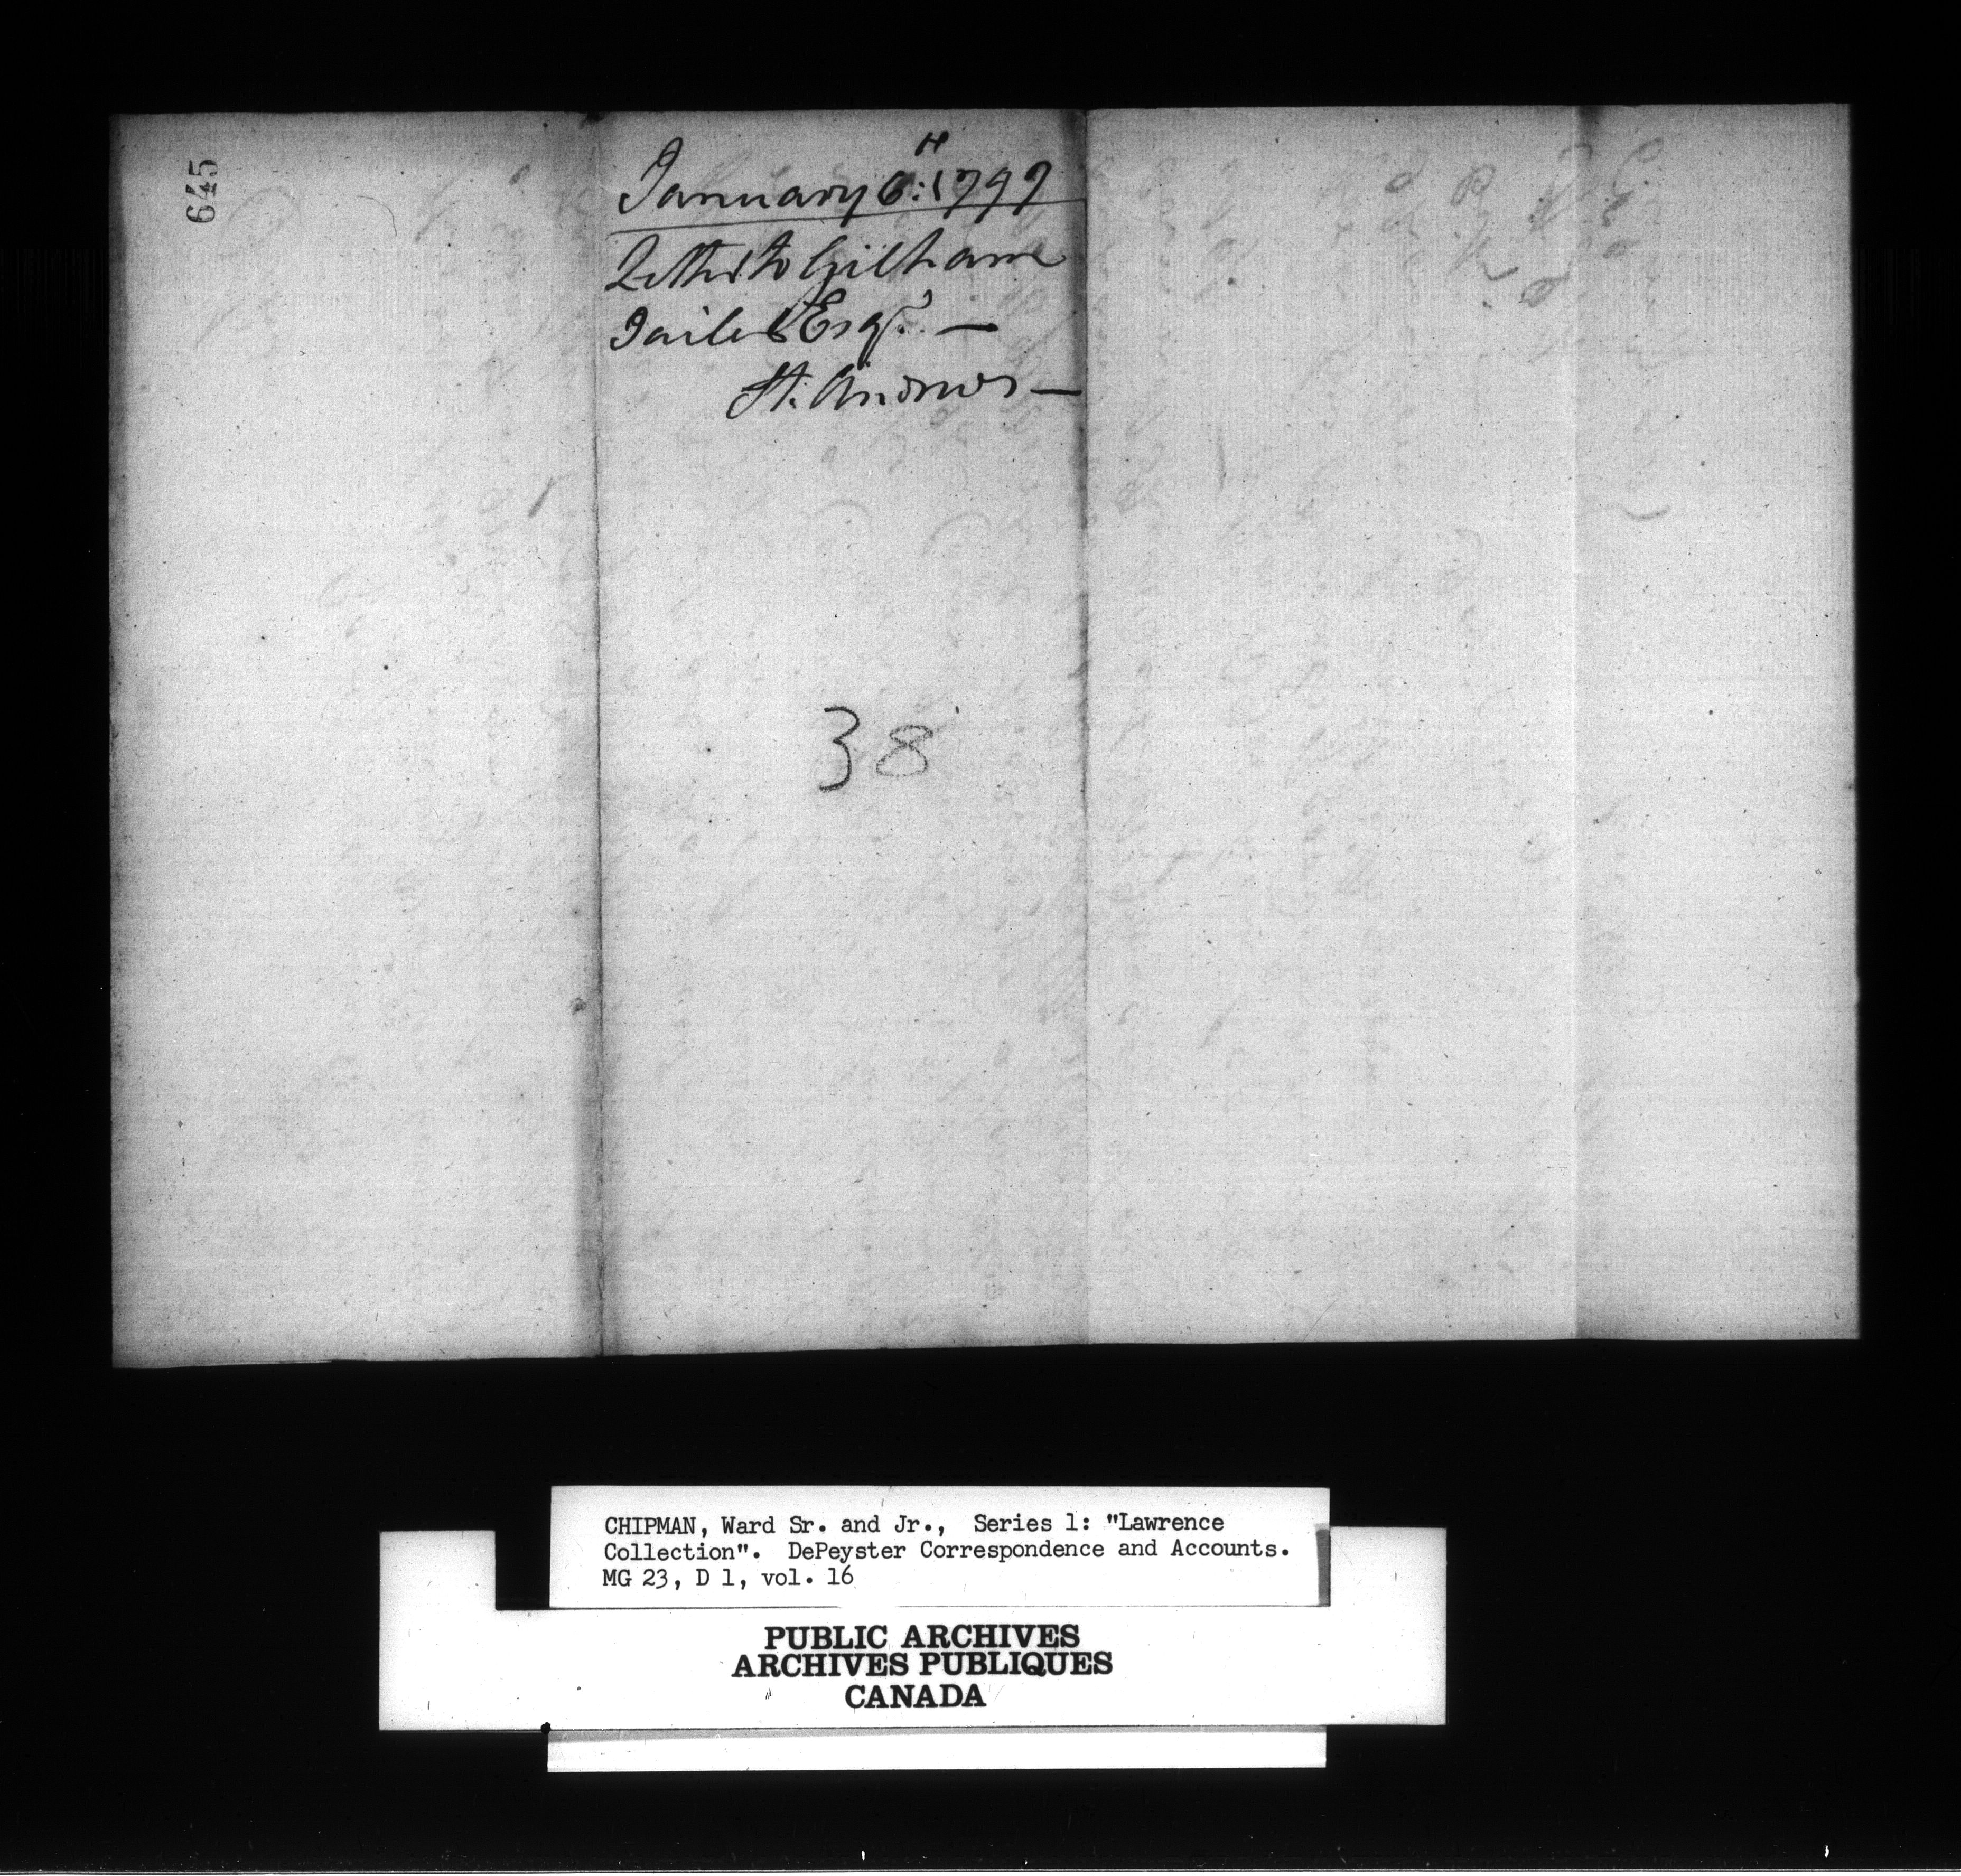 645
January 6:th 1797
Letter to Gilham
Tailer Esqr. —
St. Andrews —
38
CHIPMAN, Ward Sr. and Jr., Series 1: "Lawrence
Collection". DePeyster Correspondence and Accounts.
MG 23, D 1, vol. 16
PUBLIC ARCHIVES
ARCHIVES PUBLIQUES
CANADA